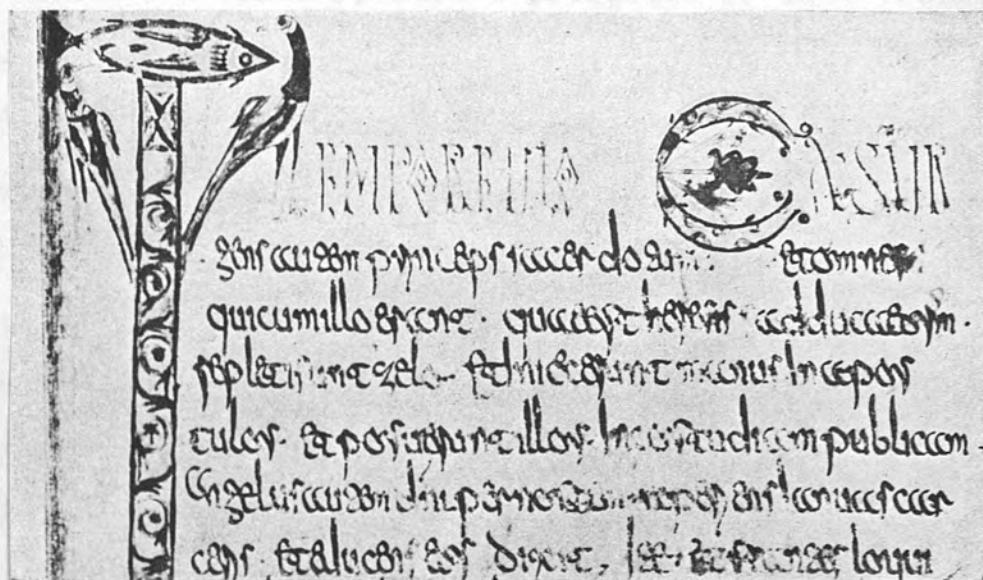 TEMPORE ILLO EXSUR
gens autem princeps sacerdotum. Et omnes
qui cum illo erant. quae est heresis sadducaeorum.
repleti sunt zelo. Et iniecerunt manus in apos
tulos. Et posuerunt illos. In custodiam publicam.
Angelus autem dni per noctem aperiens ianuas car
ceris. Et educens eos dixit. Ite. Et stantes loqui